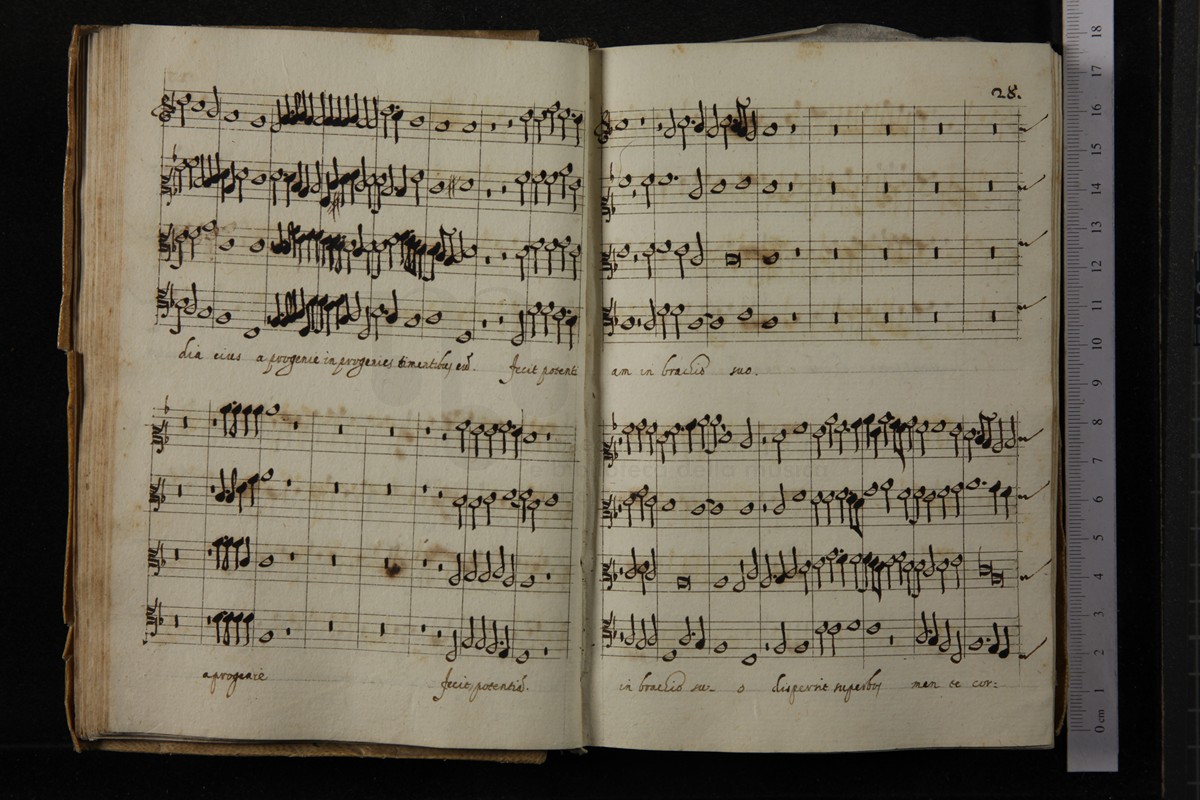 28.
dia eius a progenie in progenies timentibus eū. fecit potenti
am in brachio suo.
a progenie fecit potentiā.
in brachio su- o dispersit superbos men te cor-
e biblioteca della musica
0 cm 1 2 3 4 5 6 7 8 9 10 11 12 13 14 15 16 17 18